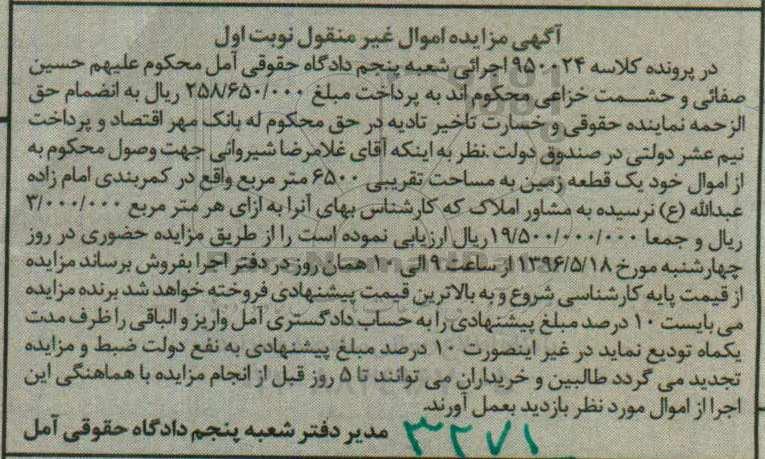 آگهی مزایده اموال غیر منقول نوبت اول
در پرونده کلاسه ۹۵۰۰۲۴ اجرائی شعبه پنجم دادگاه حقوقی آمل محکوم علیهم حسین
صفائی و حشمت خزاعی محکوم اند به پرداخت مبلغ ۲۵۸/۶۵۰/۰۰۰ ریال به انضمام حق
الزحمه نماینده حقوقی و خسارت تاخیر تادیه در حق محکوم له بانک مهر اقتصاد و پرداخت
نیم عشر دولتی در صندوق دولت .نظر به اینکه آقای غلامرضا شیروانی جهت وصول محکوم به
از اموال خود یک قطعه زمین به مساحت تقریبی ۶۵۰۰ متر مربع واقع در کمربندی امام زاده
عبدالله (ع) نرسیده به مشاور املاک که کارشناس بهای آنرا به ازای هر متر مربع ۳/۰۰۰/۰۰۰
ریال و جمعا ۱۹/۵۰۰/۰۰۰/۰۰۰ ریال ارزیابی نموده است را از طریق مزایده حضوری در روز
چهارشنبه مورخ ۱۳۹۶/۵/۱۸ از ساعت ۹ الی ۱۰ همان روز در دفتر اجرا بفروش برساند مزایده
از قیمت پایه کارشناسی شروع و به بالاترین قیمت پیشنهادی فروخته خواهد شد برنده مزایده
می بایست ۱۰ درصد مبلغ پیشنهادی را به حساب دادگستری آمل واریز و الباقی را ظرف مدت
یکماه تودیع نماید در غیر اینصورت ۱۰ درصد مبلغ پیشنهادی به نفع دولت ضبط و مزایده
تجدید می گردد طالبین و خریداران می توانند تا ۵ روز قبل از انجام مزایده با هماهنگی این
اجرا از اموال مورد نظر بازدید بعمل آورند.
مدیر دفتر شعبه پنجم دادگاه حقوقی آمل
۳۲۷۱